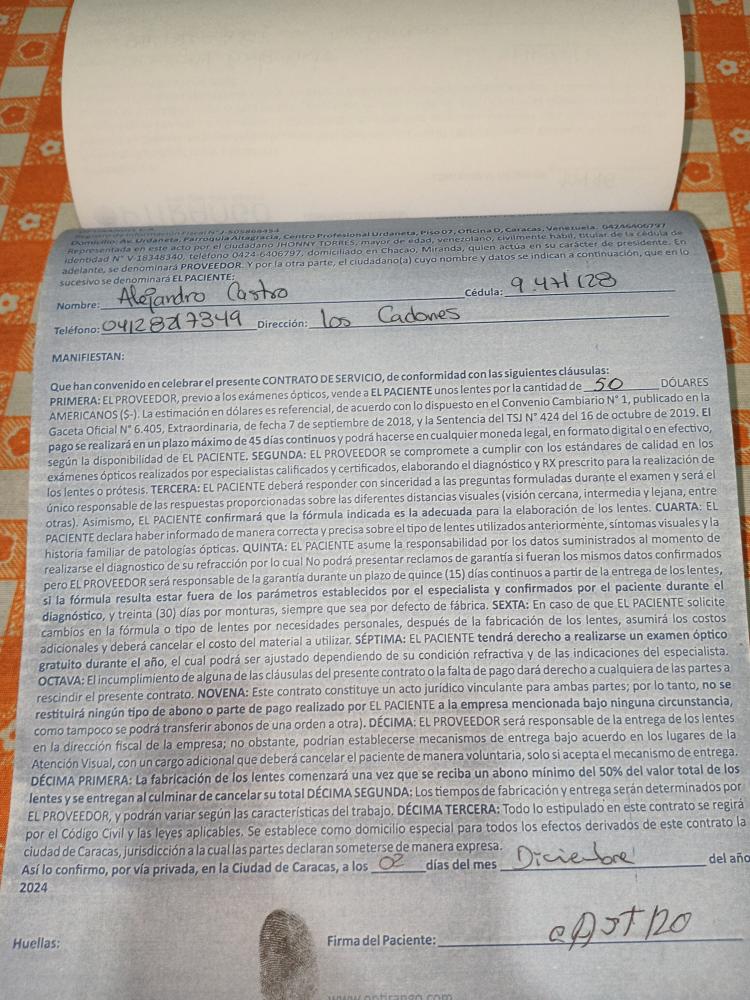 Domicilio: Av. Urdaneta, Parroquia Altagracia, Centro Profesional Urdaneta, Piso 07, Oficina D, Caracas, Venezuela. 04246406797
Representada en este acto por el ciudadano JHONNY TORRES, mayor de edad, venezolano, civilmente hábil, titular de la cédula de
identidad N° V-18348340, teléfono 0424-6406797, domiciliado en Chacao, Miranda, quien actúa en su carácter de presidente. En
adelante, se denominará PROVEEDOR. Y por la otra parte, el ciudadano(a) cuyo nombre y datos se indican a continuación, que en lo
sucesivo se denominará EL PACIENTE:
Nombre: Alejandro Castro Cédula: 9.471128
Teléfono: Dirección: los Cadones
MANIFIESTAN:
Que han convenido en celebrar el presente CONTRATO DE SERVICIO, de conformidad con las siguientes cláusulas:
PRIMERA: EL PROVEEDOR, previo a los exámenes ópticos, vende a EL PACIENTE unos lentes por la cantidad de 50 DÓLARES
AMERICANOS ($-). La estimación en dólares es referencial, de acuerdo con lo dispuesto en el Convenio Cambiario N° 1, publicado en la
Gaceta Oficial N° 6.405, Extraordinaria, de fecha 7 de septiembre de 2018, y la Sentencia del TSJ N° 424 del 16 de octubre de 2019. El
pago se realizará en un plazo máximo de 45 días continuos y podrá hacerse en cualquier moneda legal, en formato digital o en efectivo,
según la disponibilidad de EL PACIENTE. SEGUNDA: EL PROVEEDOR se compromete a cumplir con los estándares de calidad en los
exámenes ópticos realizados por especialistas calificados y certificados, elaborando el diagnóstico y RX prescrito para la realización de
los lentes o prótesis. TERCERA: EL PACIENTE deberá responder con sinceridad a las preguntas formuladas durante el examen y será el
único responsable de las respuestas proporcionadas sobre las diferentes distancias visuales (visión cercana, intermedia y lejana, entre
otras). Asimismo, EL PACIENTE confirmará que la fórmula indicada es la adecuada para la elaboración de los lentes. CUARTA: EL
PACIENTE declara haber informado de manera correcta y precisa sobre el tipo de lentes utilizados anteriormente, síntomas visuales y la
historia familiar de patologías ópticas. QUINTA: EL PACIENTE asume la responsabilidad por los datos suministrados al momento de
realizarse el diagnostico de su refracción por lo cual No podrá presentar reclamos de garantía si fueran los mismos datos confirmados
pero EL PROVEEDOR será responsable de la garantía durante un plazo de quince (15) días continuos a partir de la entrega de los lentes,
si la fórmula resulta estar fuera de los parámetros establecidos por el especialista y confirmados por el paciente durante el
diagnóstico, y treinta (30) días por monturas, siempre que sea por defecto de fábrica. SEXTA: En caso de que EL PACIENTE solicite
cambios en la fórmula o tipo de lentes por necesidades personales, después de la fabricación de los lentes, asumirá los costos
adicionales y deberá cancelar el costo del material a utilizar. SÉPTIMA: EL PACIENTE tendrá derecho a realizarse un examen óptico
gratuito durante el año, el cual podrá ser ajustado dependiendo de su condición refractiva y de las indicaciones del especialista.
OCTAVA: El incumplimiento de alguna de las cláusulas del presente contrato o la falta de pago dará derecho a cualquiera de las partes a
rescindir el presente contrato. NOVENA: Este contrato constituye un acto jurídico vinculante para ambas partes; por lo tanto, no se
restituirá ningún tipo de abono o parte de pago realizado por EL PACIENTE a la empresa mencionada bajo ninguna circunstancia,
como tampoco se podrá transferir abonos de una orden a otra). DÉCIMA: EL PROVEEDOR será responsable de la entrega de los lentes
en la dirección fiscal de la empresa; no obstante, podrían establecerse mecanismos de entrega bajo acuerdo en los lugares de la
Atención Visual, con un cargo adicional que deberá cancelar el paciente de manera voluntaria, solo si acepta el mecanismo de entrega.
DÉCIMA PRIMERA: La fabricación de los lentes comenzará una vez que se reciba un abono mínimo del 50% del valor total de los
lentes y se entregan al culminar de cancelar su total DÉCIMA SEGUNDA: Los tiempos de fabricación y entrega serán determinados por
EL PROVEEDOR, y podrán variar según las características del trabajo. DÉCIMA TERCERA: Todo lo estipulado en este contrato se regirá
por el Código Civil y las leyes aplicables. Se establece como domicilio especial para todos los efectos derivados de este contrato la
ciudad de Caracas, jurisdicción a la cual las partes declaran someterse de manera expresa.
Así lo confirmo, por vía privada, en la Ciudad de Caracas, a los 02 días del mes Diciembre del año
2024
Huellas: Firma del Paciente: cAstRo
www.optirango.com